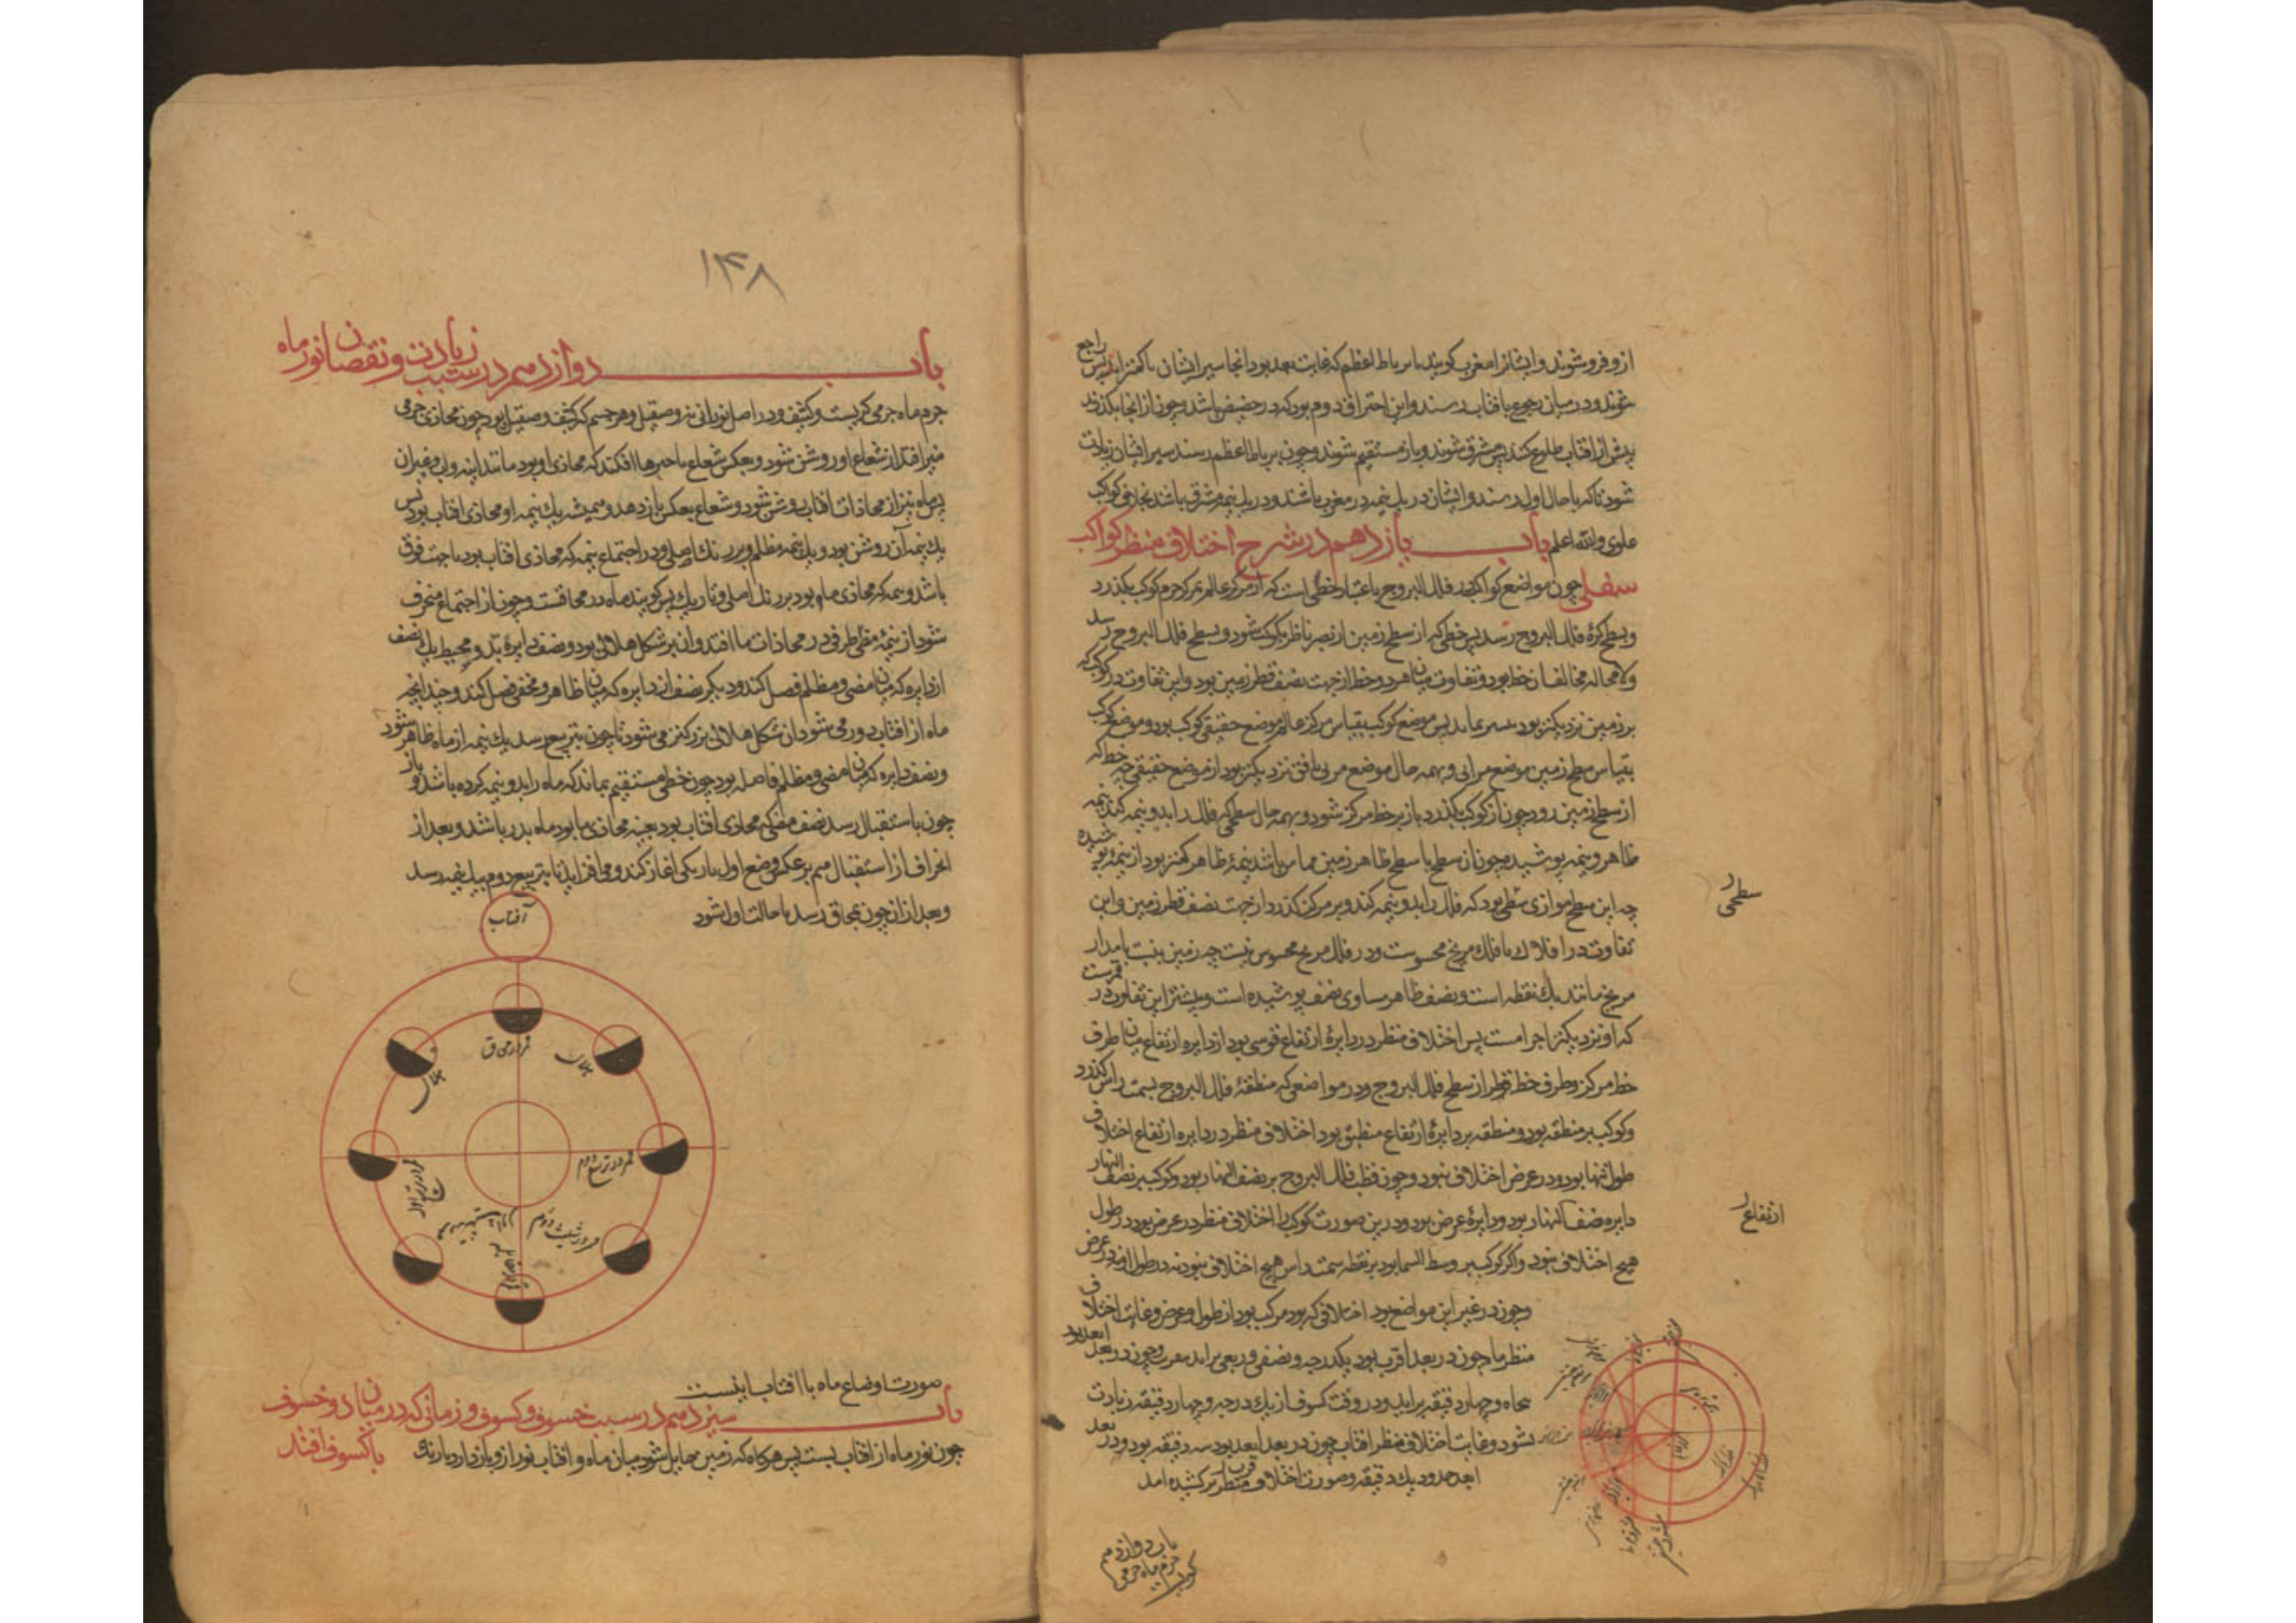 از و فرو شوند و ایشانرا مغربی گویند تا برباط اعظم که غایت بعد بود انجا سیر ایشان با کمتر اید پس راجع
شوند و در میان رجوع بافتاب رسند و این احتراق دوم بود که در حضیض باشد و چون از انجا بگذرند
پیش از افتاب طلوع کنند پس مشرقی شوند و باز مستقیم شوند و چون برباط اعظم رسند سیر ایشان زیادت
شود تا که باحال اول رسند و ایشان در یك نیمه در مغرب باشند و در یك نیمه مشرق باشند بخلاف کواکب
علوی والله اعلم باب یازدهم در شرح اختلاف منظر کواکب
سفلی چون مواضع کواکب در فلك البروج باعتبار خطی است که از مرکز عالم بمرکز جرم کوکب بگذرد
و بسطح کره فلك البروج رسد پس خطی که از سطح زمین از بصر ناظر بکوکب شود و بسطح فلك البروج رسد
ولا محاله مخالف ان خط بود و تفاوت میان هر دو خط از جهت نصف قطر زمین بود و این تفاوت در کوکبی که
بر زمین نزدیکتر بود بیشتر بماند پس موضع کوکب بقیاس مرکز عالم موضع حقیقی کوکب بود و موضع کوکب
بقیاس سطح زمین موضع مرئی و بهمه حال موضع مرئی بافق نزدیکتر بود از موضع حقیقی چه خط که
از سطح زمین رود چون از کوکب بگذرد باز بر خط مرکز شود و بهمه حال سطحی که فلك را بدو نیمه کند نیمه
ظاهر و نیمه پوشیده چون ان سطح با سطح ظاهر زمین مماس باشد نیمهٔ ظاهر کمتر بود از نیمهٔ پوشیده
چه این سطح موازی سطحی بود که فلك را بدو نیمه کند و بر مرکز گذرد از جهت نصف قطر زمین و این
سطحی
تفاوت در افلاك تا فلك مریخ محسوست و در فلك مریخ محسوس نیست چه زمین بنسبت با مدار
مریخ مانند یك نقطه است و نصف ظاهر مساوی نصف پوشیده است و بیشتر این تفاوت در قمرست
که او نزدیکتر اجرامست پس اختلاف منظر در دایرهٔ ارتفاع قوسی بود از دایره ارتفاع میان طرف
خط مرکز و طرف خط قطر از سطح فلك البروج و در مواضعی که منطقهٔ فلك البروج بسمت راس گذرد
و کوکب بر منطقه بود و منطقه بر دایرهٔ ارتفاع منطبق بود اختلاف منظر در دایره ارتفاع اختلاف
طول تنها بود و در عرض اختلاف نبود و چون قطب فلك البروج بر نصف النهار بود و کوکب بر نصف النهار
دایره نصف النهار بود و دایرهٔ عرض بود و درین صورت کوکب را اختلاف منظر در عرض بود در طول
ارتفاع
هیچ اختلاف نبود و اگر کوکب بر وسط السما بود بر نقطه سمت راس هیچ اختلاف نبود نه در طول و نه در عرض
و چون در غیر این مواضع بود اختلافی که بود مرکب بود از طول و عرض و غایت اختلاف
منظر ماه چون در بعد اقرب بود یکدرجه و نصفی و ربعی براید بتقریب و چون در بعد ابعد بود
پنجاه و چهار دقیقه براید و در وقت کسوف از یك درجه و چهار دقیقه زیادت
نشود و غایت اختلاف منظر افتاب چون در بعد ابعد بود سه دقیقه بود و در بعد
ابعد حدود یك دقیقه و صورت اختلاف منظر برکشیده امد
باب دوازدهم
جرم ماه جرمی
کریست
۱۴۸
باب دوازدهم در سبب زیادت و نقصان نور ماه
جرم ماه جرمی کریست و کثیف و در اصل نورانی نه و صقیل و هر جسم که کثیف و صقیل بود چون محاذی جرمی
منیر افتد از شعاع او روشن شود و بعکس شعاع با چیزها افکند که محاذی او بود مانند اینه و اب و غیر ان
پس ماه نیز از محاذات افتاب روشن شود و شعاع بعکس باز دهد و همیشه یك نیمه او محاذی افتاب بود پس
یك نیمه آن روشن بود و یك نیمه مظلم و بر رنك اصلی و در اجتماع نیمه که محاذی افتاب بود با جهت فوق
باشد و نیمه که محاذی ما بود بر رنك اصلی و تاریك پس گویند ماه در محاقست و چون از اجتماع منحرف
شود از نیمهٔ مضی طرفی در محاذات ما افتد و ان بر شکل هلالی بود و نصف دایرهٔ بدو محیط یك نصف
از دایره که میان مضی و مظلم فصل کند و دیگر نصف از دایره که میان ظاهر و مخفی فصل کند و چندانچه
ماه از افتاب دور می شود ان شکل هلالی بزرگتر می شود تا چون بتربیع رسد یك نیمه از ماه ظاهر شود
و نصف دایره که میان مضی و مظلم فاصله بود چون خطی مستقیم بماند که ماه را بدو نیمه کرده باشد و باز
چون باستقبال رسد نصف مضی که محاذی افتاب بود بعینه محاذی ما بود ماه بدر باشد و بعد از
انحراف از استقبال هم بر عکس وضع اول باریکی اغاز کند و می افزاید تا بتربیع دوم بیك نیمه رسد
و بعد از ان چون بمحاق رسد با حالت اول شود
آفتاب
قمر در محاق
هلال
هلال
قمر در تربیع دوم
قمر در تربیع اول
قمر در تثلیث دوم
صورت اوضاع ماه با افتاب اینست
باب سیزدهم در سبب خسوف و کسوف و زمانی که در میان دو خسوف
یا کسوف افتد
چون نور ماه از افتاب بست پس هرگاه که زمین حایل شود میان ماه و افتاب نور از و باز دارد بارنك